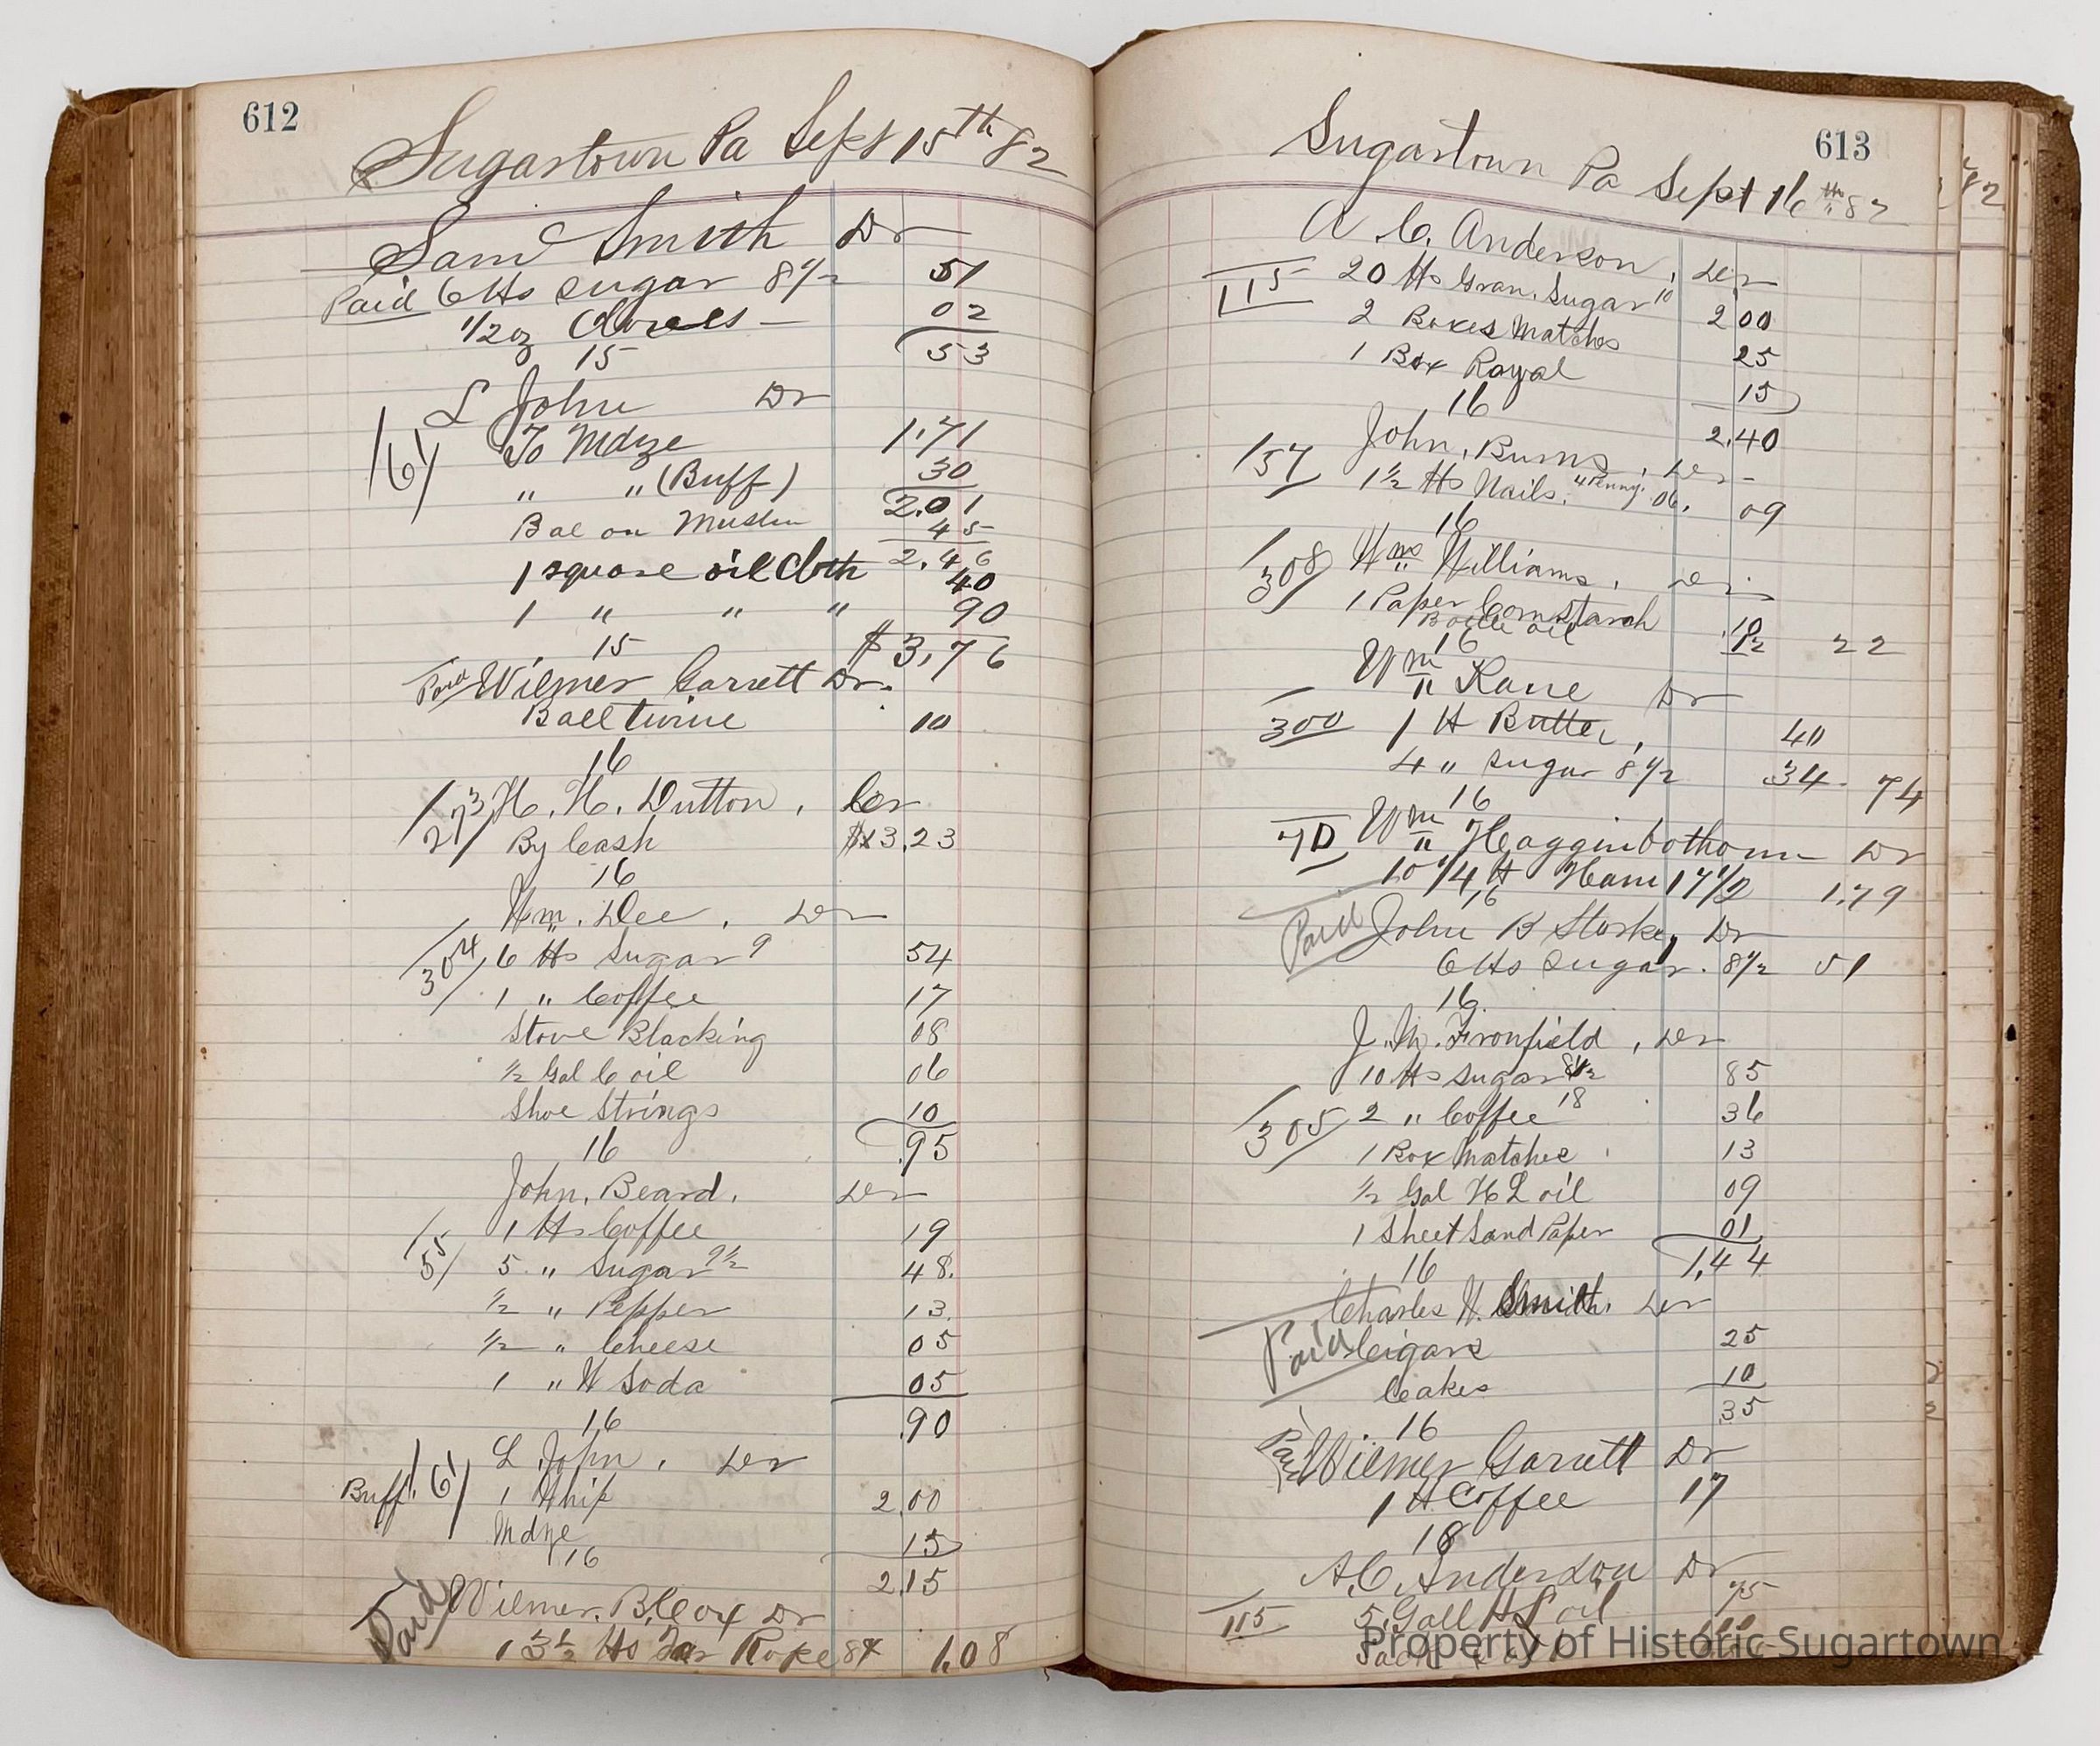 612
Sugartown Pa Sept 15th 82
Sam Smith Dr
Paid 6 lbs sugar 8 1/2 51
1/2 oz Cloves — 02
15 53
L John Dr
161 To Mdze 1.71
" " (Buff) 30
2.01
Bal on Muslin 45
2.46
1 square oil Cloth 40
1 " " " 90
15 $3,76
Paid Wilmer Garrett Dr.
Ball twine 10
16
273 H. H. Dutton, Cr
By Cash $13,23
16
Wm. Dee, Dr
304 6 lbs Sugar 9 54
1 " Coffee 17
Stove Blacking 08
1/2 Gal C oil 06
Shoe Strings 10
16 .95
John, Beard, Dr
1 lbs Coffee 19
55 5 " Sugar 9 1/2 48.
1/2 " Pepper 13.
1/2 " Cheese 05
1 " W Soda 05
16 .90
L John, Dr
Buff. 161 1 Whip 2.00
Mdze 15
16 2.15
Paid Wilmer. B. Cox Dr
13 1/2 lbs Tar Rope 8 1.08
613
Sugartown Pa Sept 16th " 82
A C. Anderson, Dr
115 20 lbs Gran. Sugar 10 2.00
2 Boxes Matches 25
1 Box Royal 15
16 2.40
John, Burns, Dr -
157 1 1/2 lbs Nails. 4 Penny. 06. 09
16
308 Wms Williams, Dr
1 Paper Cornstarch 10
Bottle oil 12 22
16
Wm Kane Dr
300 1 lb Butter, 40
4 " sugar 8 1/2 34. 74
16
70 Wm Hagginbothom Dr
10 1/4 lb Ham 17 1/2 1.79
16
Paid John B Starkey Dr
6 lbs sugar. 8 1/2 51
16
J. M. Fronfield, Dr
10 lbs sugar 8 1/2 85
305 2 " Coffee 18 36
1 Box Matches 13
1/2 Gal H L oil 09
1 Sheet Sand Paper 01
16 1,44
Charles W. Smith. Dr
Paid Cigars 25
Cakes 10
16 35
Paid Wilmer Garrett Dr
1 lb Coffee 17
18
A. C. Anderson Dr
115 5 Gall H L oil 75
Property of Historic Sugartown